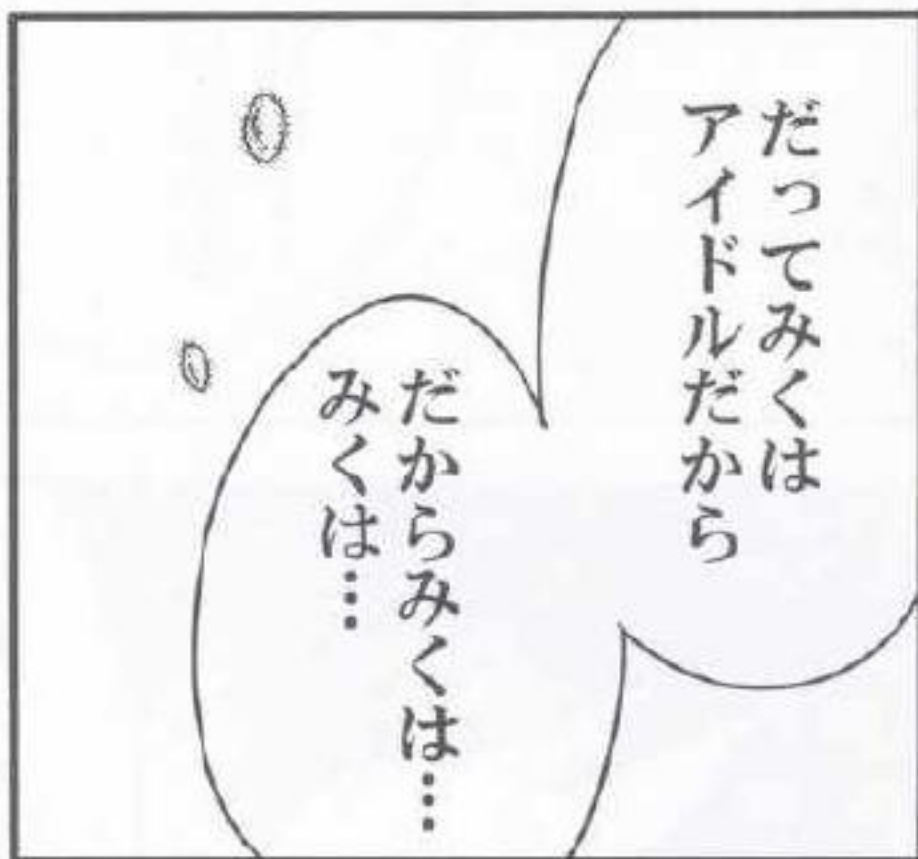 だってみくは
アイドルだから
だからみくは…
みくは…